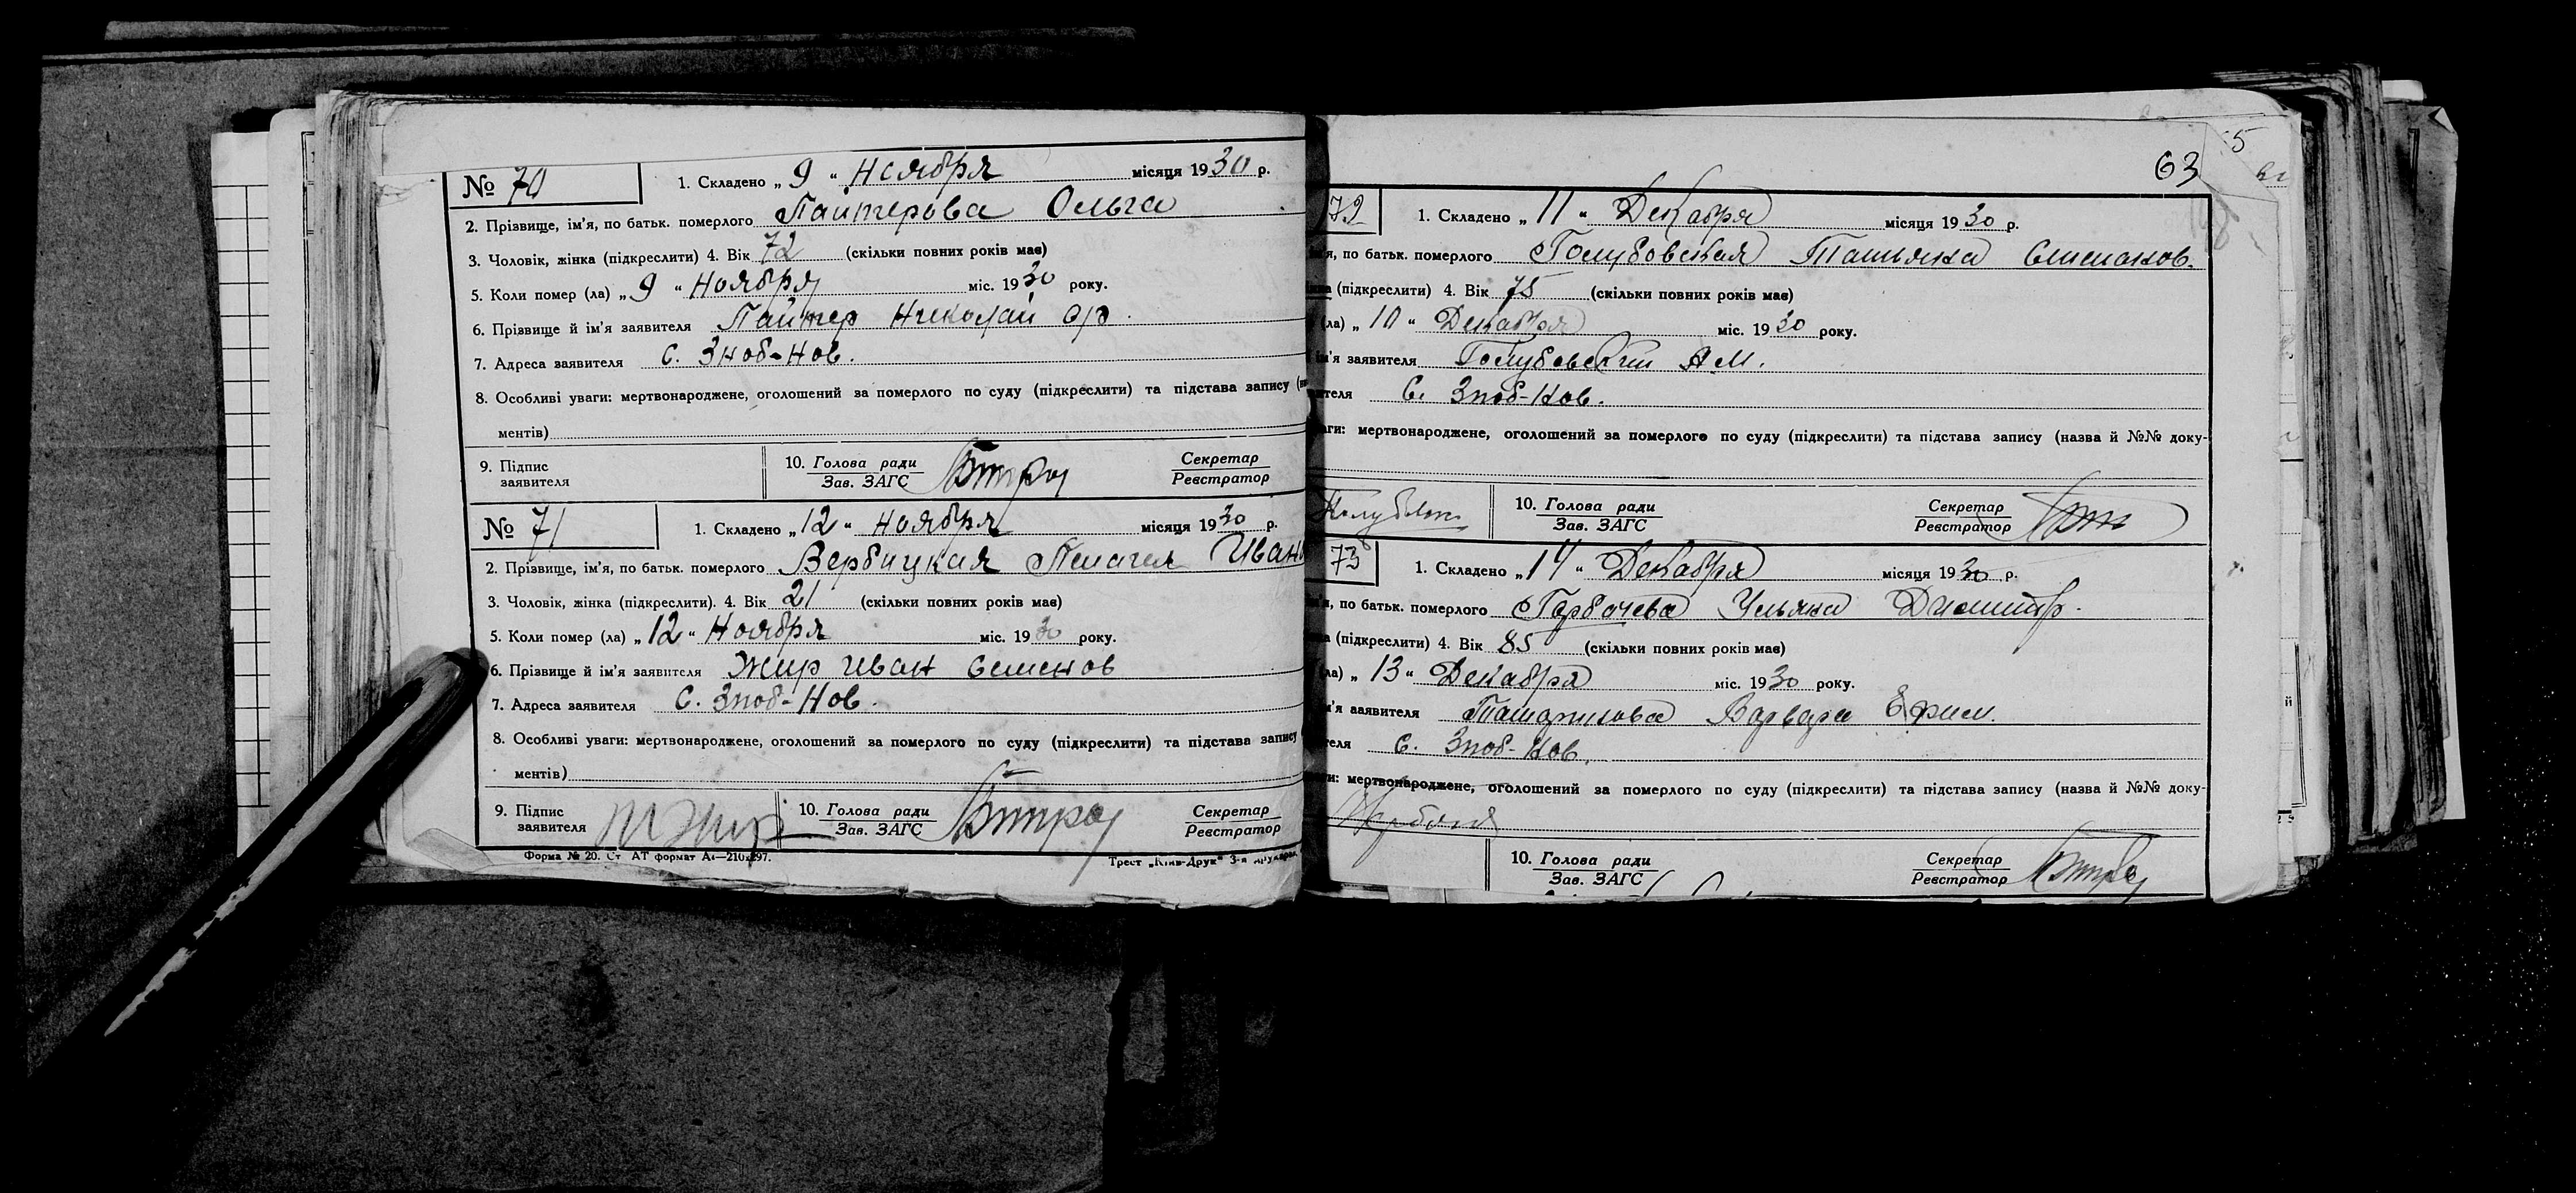 № 70 1. Складено „ 9 “ Ноября місяця 1930 р.
2. Прізвище, ім'я, по батьк. померлого Пайтерова Ольга
3. Чоловік, жінка (підкреслити) 4. Вік 72 (скільки повних років має)
5. Коли помер (ла) „ 9 “ Ноября міс. 1930 року.
6. Прізвище й ім'я заявителя Пайтер Николай
7. Адреса заявителя С. Зноб-Нов.
8. Особливі уваги: мертвонароджене, оголошений за померлого по суду (підкреслити) та підстава запису
ментів)
9. Підпис заявителя 10. Голова ради Зав. ЗАГС Секретар Реєстратор
№ 71 1. Складено „ 12 “ Ноября місяця 1930 р.
2. Прізвище, ім'я, по батьк. померлого Вербицкая Пелагея Иван
3. Чоловік, жінка (підкреслити). 4. Вік 21 (скільки повних років має)
5. Коли помер (ла) „ 12 “ Ноября міс. 1930 року.
6. Прізвище й ім'я заявителя Жир Иван Семенов
7. Адреса заявителя С. Зноб-Нов.
8. Особливі уваги: мертвонароджене, оголошений за померлого по суду (підкреслити) та підстава запису
ментів)
9. Підпис заявителя Жир 10. Голова ради Зав. ЗАГС Секретар Реєстратор
Форма № 20. Ст АТ формат А4—210х297. Трест „Київ-Друк“ 3-я
63
72 1. Складено „ 11 “ Декабря місяця 1930 р.
по батьк. померлого Голубовская Татьяна
(підкреслити) 4. Вік 75 (скільки повних років має)
(ла) „ 10 “ Декабря міс. 1930 року.
ім'я заявителя Голубовский А М.
С. Зноб-Нов.
мертвонароджене, оголошений за померлого по суду (підкреслити) та підстава запису (назва й №№ доку-
10. Голова ради Зав. ЗАГС Секретар Реєстратор
73 1. Складено „ 14 “ Декабря місяця 1930 р.
по батьк. померлого Горбачева Ульяна Дмитр.
(підкреслити) 4. Вік 85 (скільки повних років має)
„ 13 “ Декабря міс. 1930 року.
заявителя Варвара Ефим.
С. Зноб-Нов.
мертвонароджене, оголошений за померлого по суду (підкреслити) та підстава запису (назва й №№ доку-
10. Голова ради Зав. ЗАГС Секретар Реєстратор